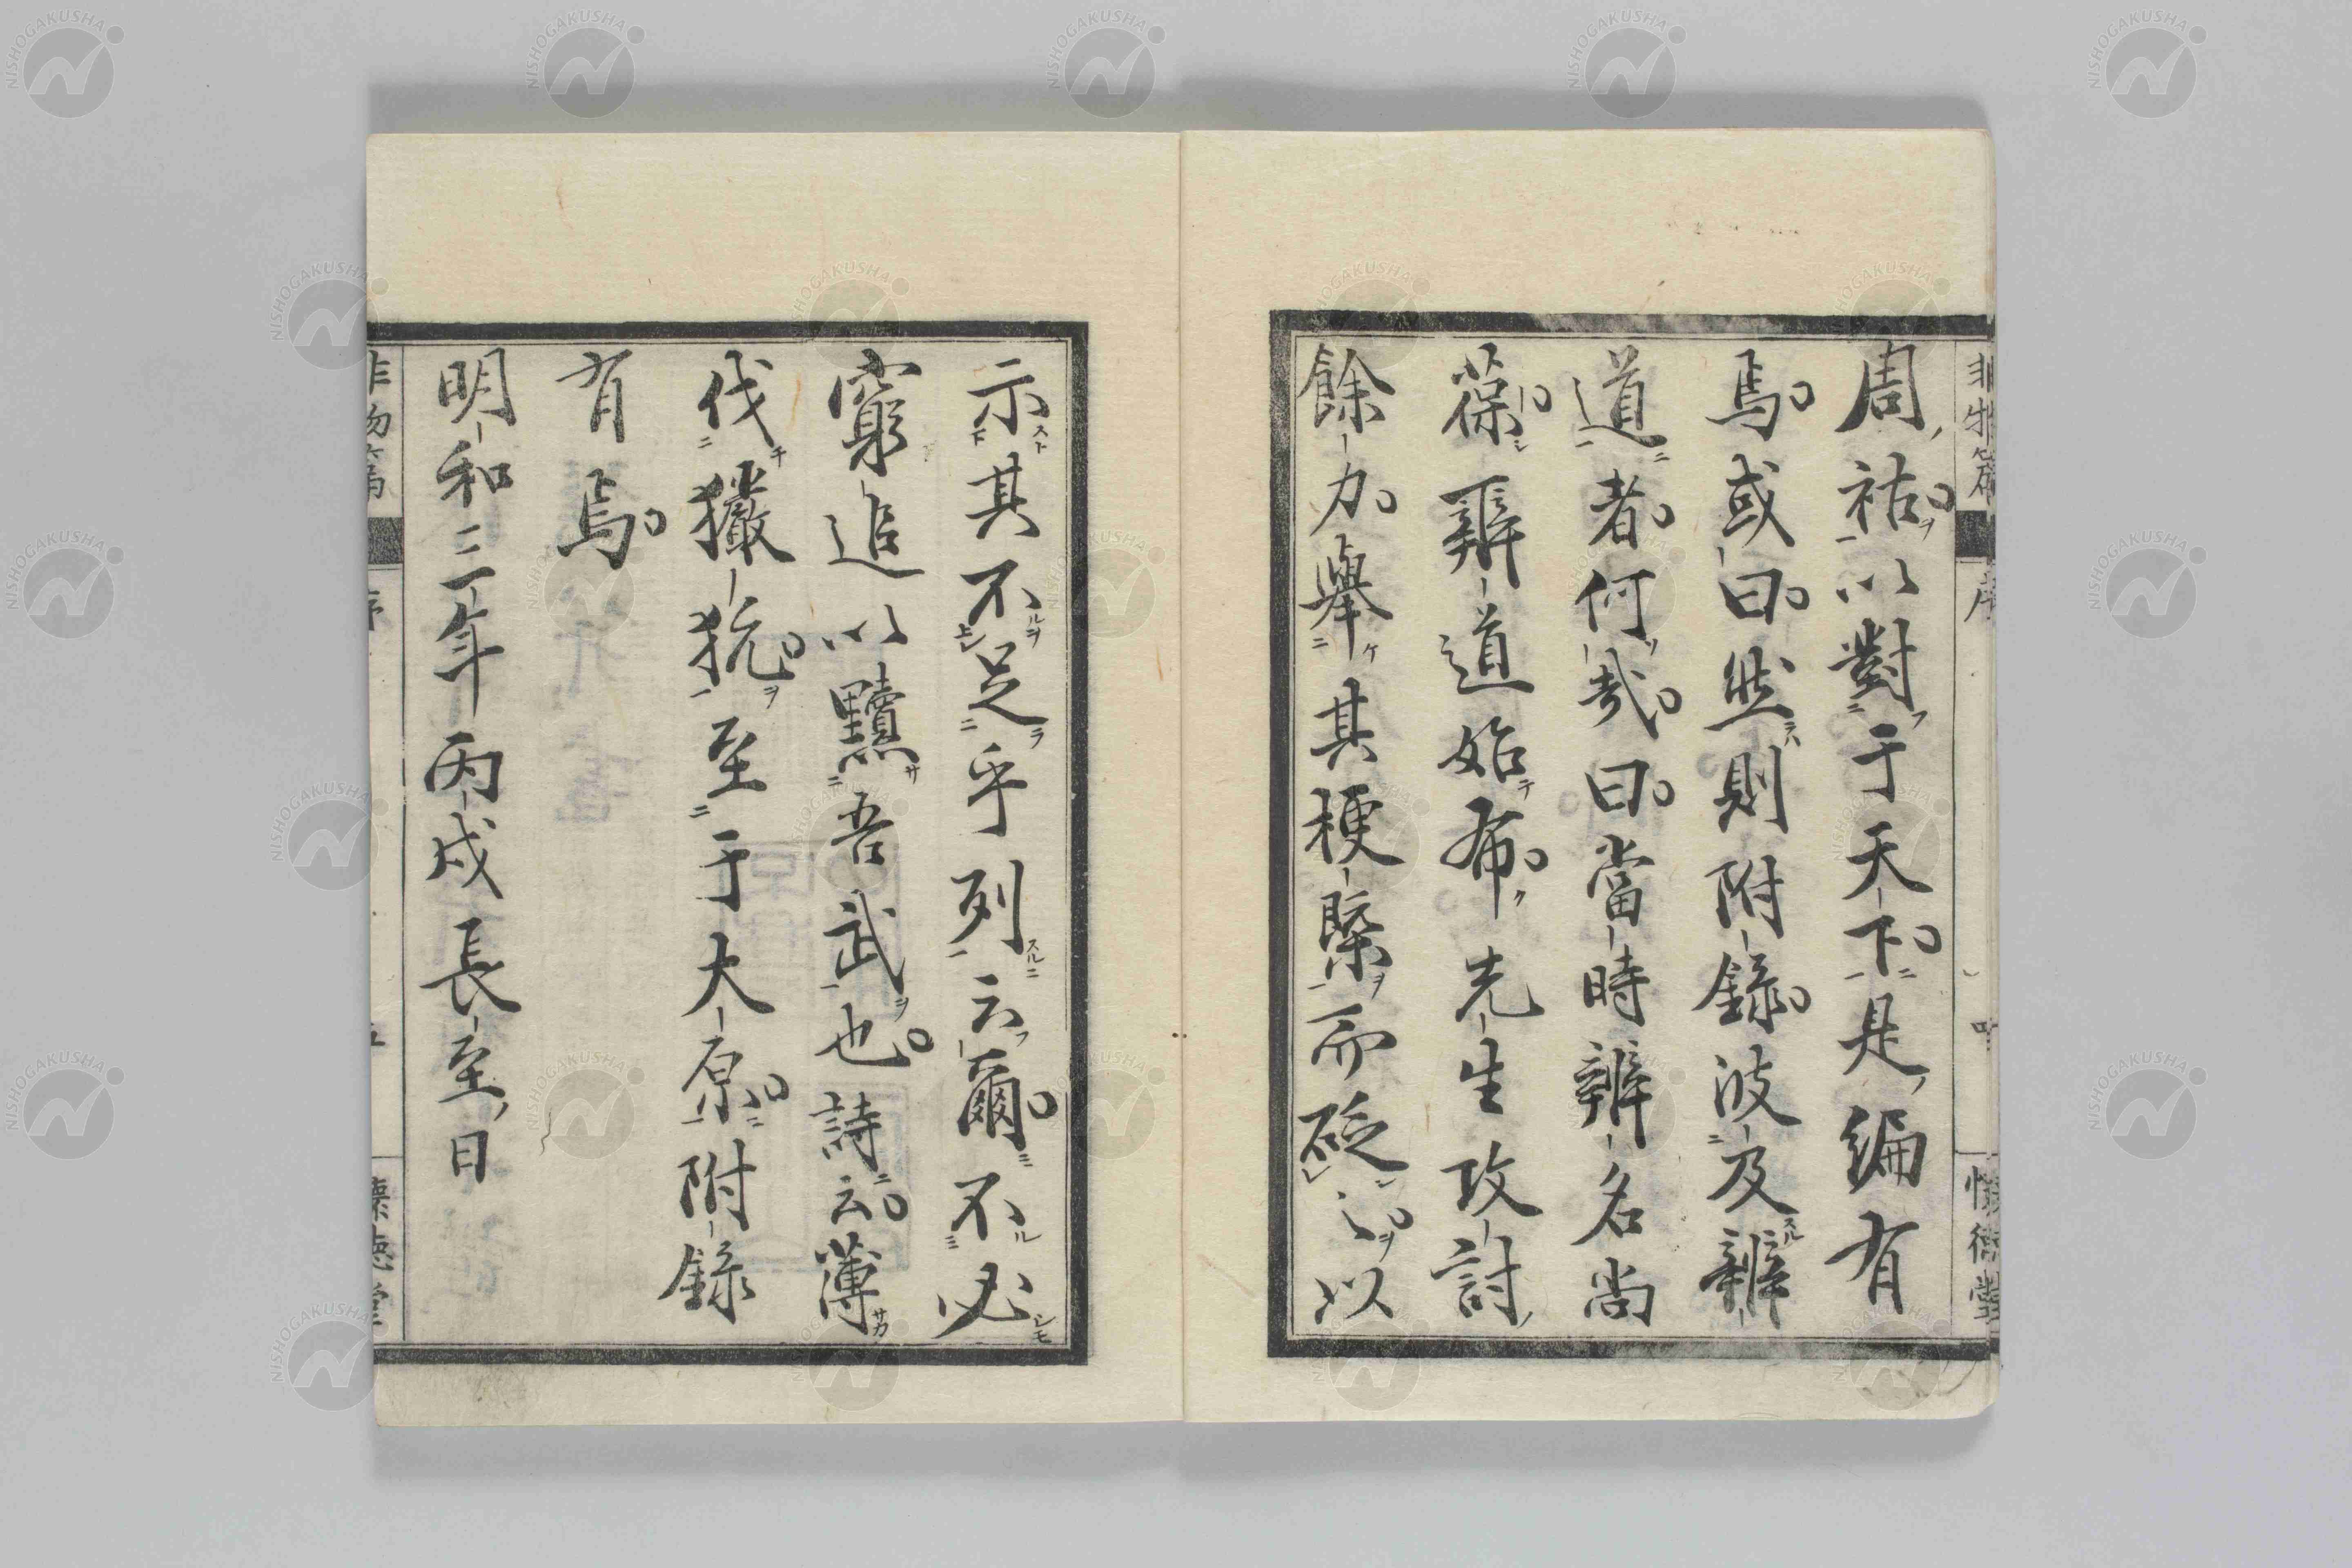 非物篇 序 懷德堂
周祜。以對于天下。是編有
焉。或曰。然則附錄。波及辨
道者。何哉。曰。當時辨名尚
葆。辨道始布。先生攻討
餘力。舉其梗槩而砭之。以
示其不足乎列云爾。不必
窮追以黷吾武也。詩云。薄
伐玁狁。至于大原。附錄
有焉。
明和三年丙戌長至日
非物篇 序 五 懷德堂
NISHOGAKUSHA